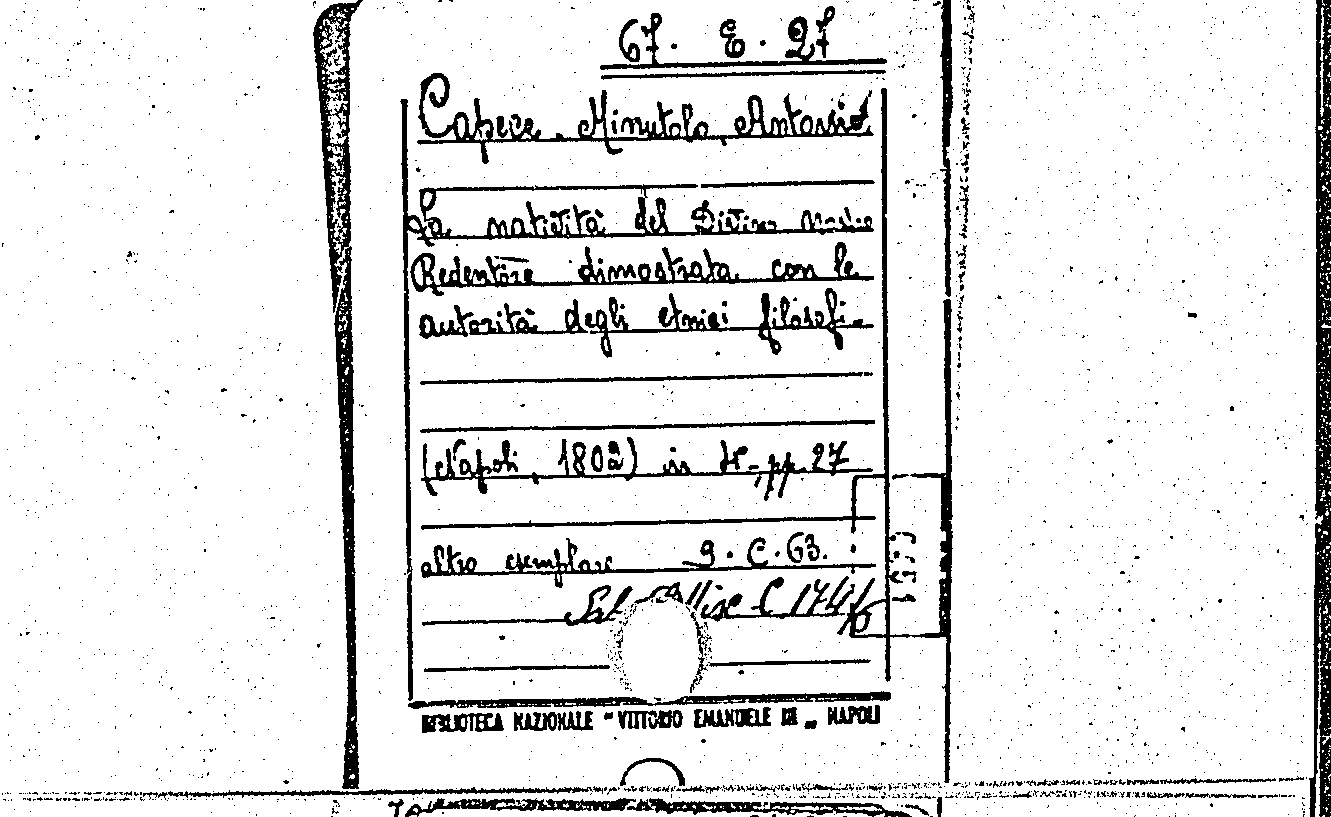 67. E. 27
Capece Minutolo, Antonio
La natività del Divino nostro
Redentore dimostrata con le
autorità degli etnici filosofi.
(Napoli, 1802) in 4°, pp. 27
altro esemplare 9. C. 63.
Misc C 174/
BIBLIOTECA NAZIONALE "VITTORIO EMANUELE III" NAPOLI